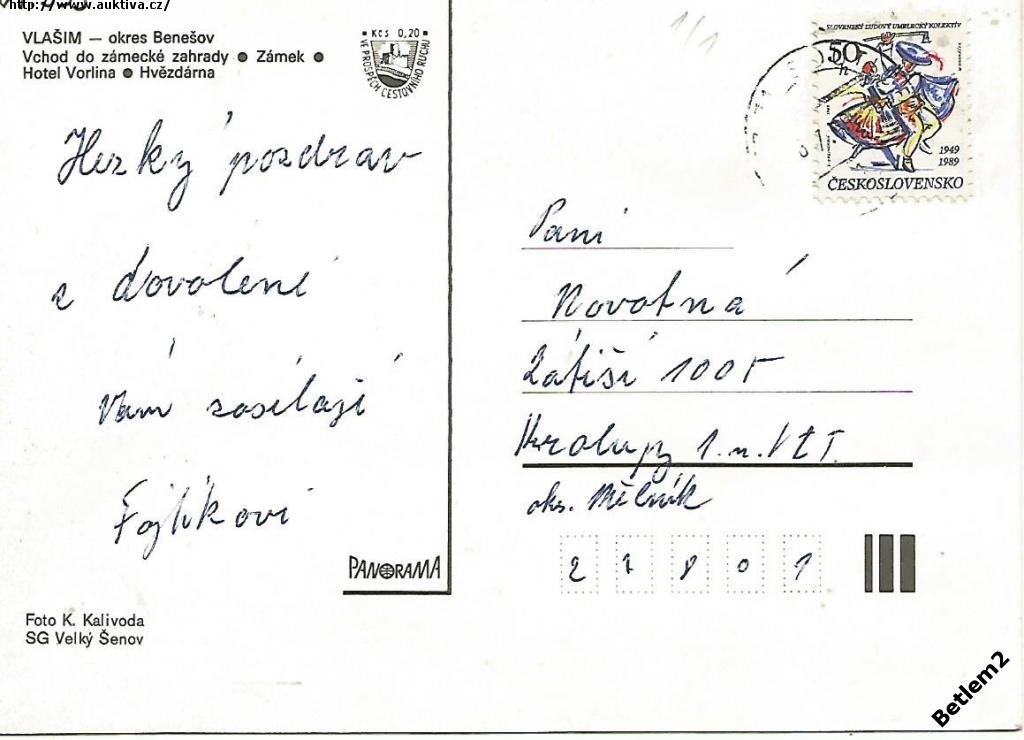 http://www.auktiva.cz/
VLAŠIM — okres Benešov
Vchod do zámecké zahrady ● Zámek ●
Hotel Vorlina ● Hvězdárna
Kčs 0,20
VE PROSPĚCH CESTOVNÍHO RUCHU
1/1
SLOVENSKÝ ĽUDOVÝ UMELECKÝ KOLEKTÍV
50 h
1949
1989
ČESKOSLOVENSKO
Hezký pozdrav
z dovolené
Vám zasílají
Fojtíkovi
Paní
Novotná
Zátiší 1005
Kralupy 1. n. Vlt.
okr. Mělník
27801
PANORAMA
Foto K. Kalivoda
SG Velký Šenov
Betlem2